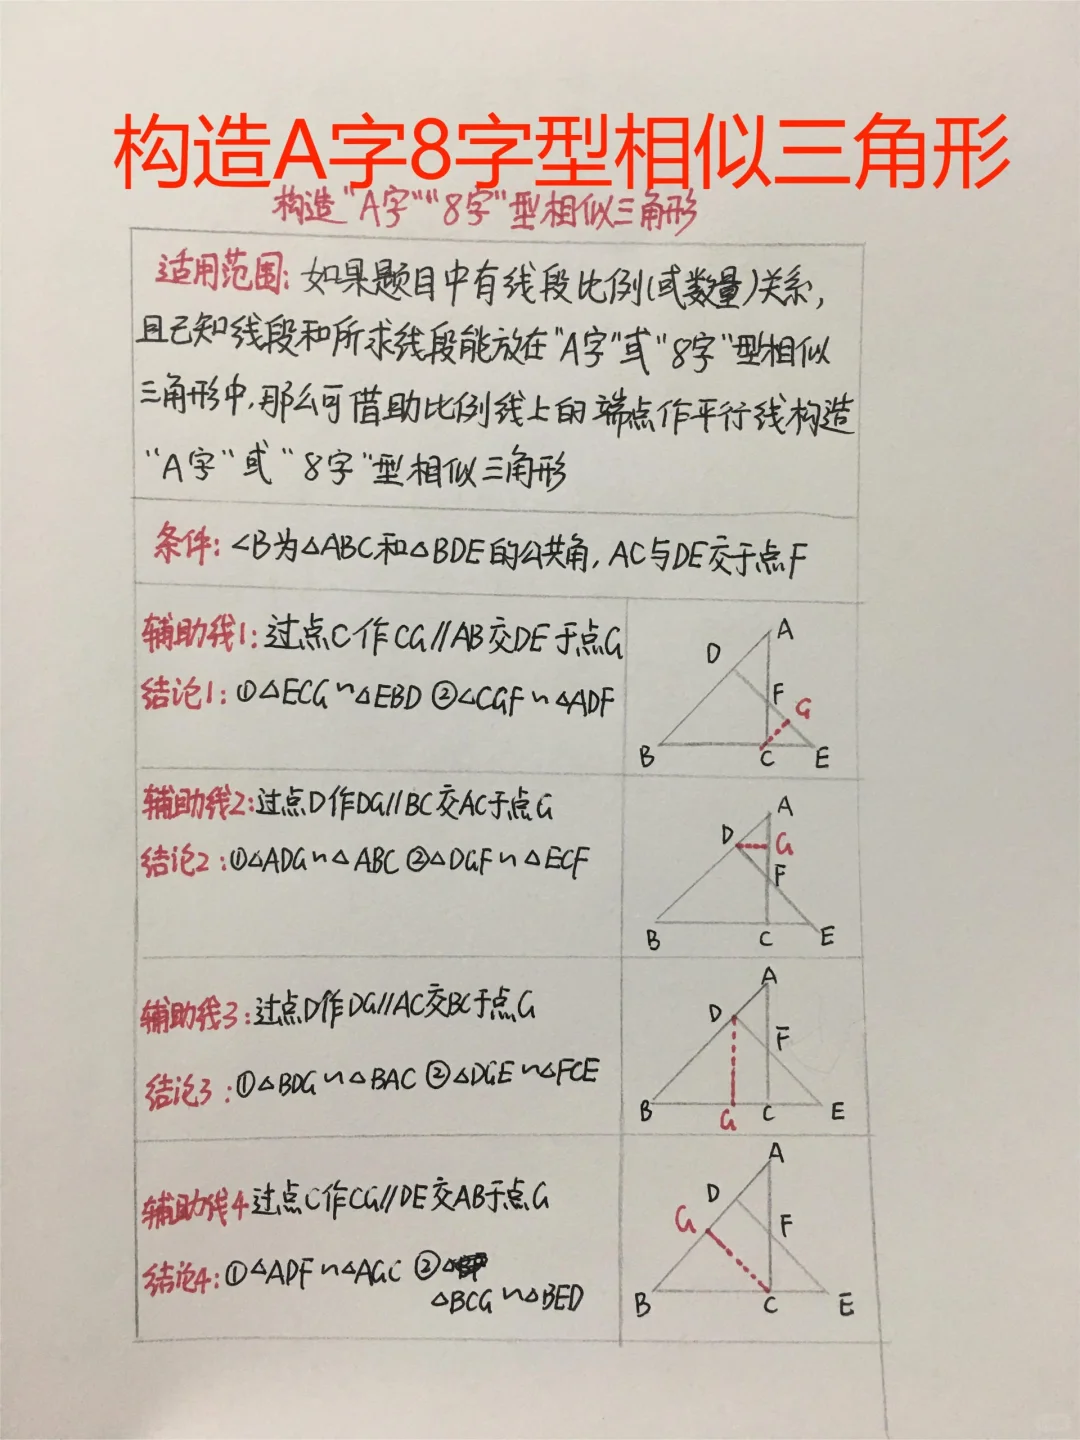 构造A字8字型相似三角形
构造"A字""8字"型相似三角形
适用范围:如果题目中有线段比例(或数量)关系,
且已知线段和所求线段能放在"A字"或"8字"型相似
三角形中,那么可借助比例线上的端点作平行线构造
"A字"或"8字"型相似三角形
条件:∠B为△ABC和△BDE的公共角,AC与DE交于点F
辅助线1:过点C作CG//AB交DE于点G
结论1:①△ECG∽△EBD ②△CGF∽△ADF
A
D
F
G
B
C
E
辅助线2:过点D作DG//BC交AC于点G
结论2:①△ADG∽△ABC ②△DGF∽△ECF
A
D
G
F
B
C
E
辅助线3:过点D作DG//AC交BC于点G
结论3:①△BDG∽△BAC ②△DGE∽△FCE
A
D
F
B
G
C
E
辅助线4过点C作CG//DE交AB于点G
结论4:①△ADF∽△AGC ②△
△BCG∽△BED
A
D
G
F
B
C
E